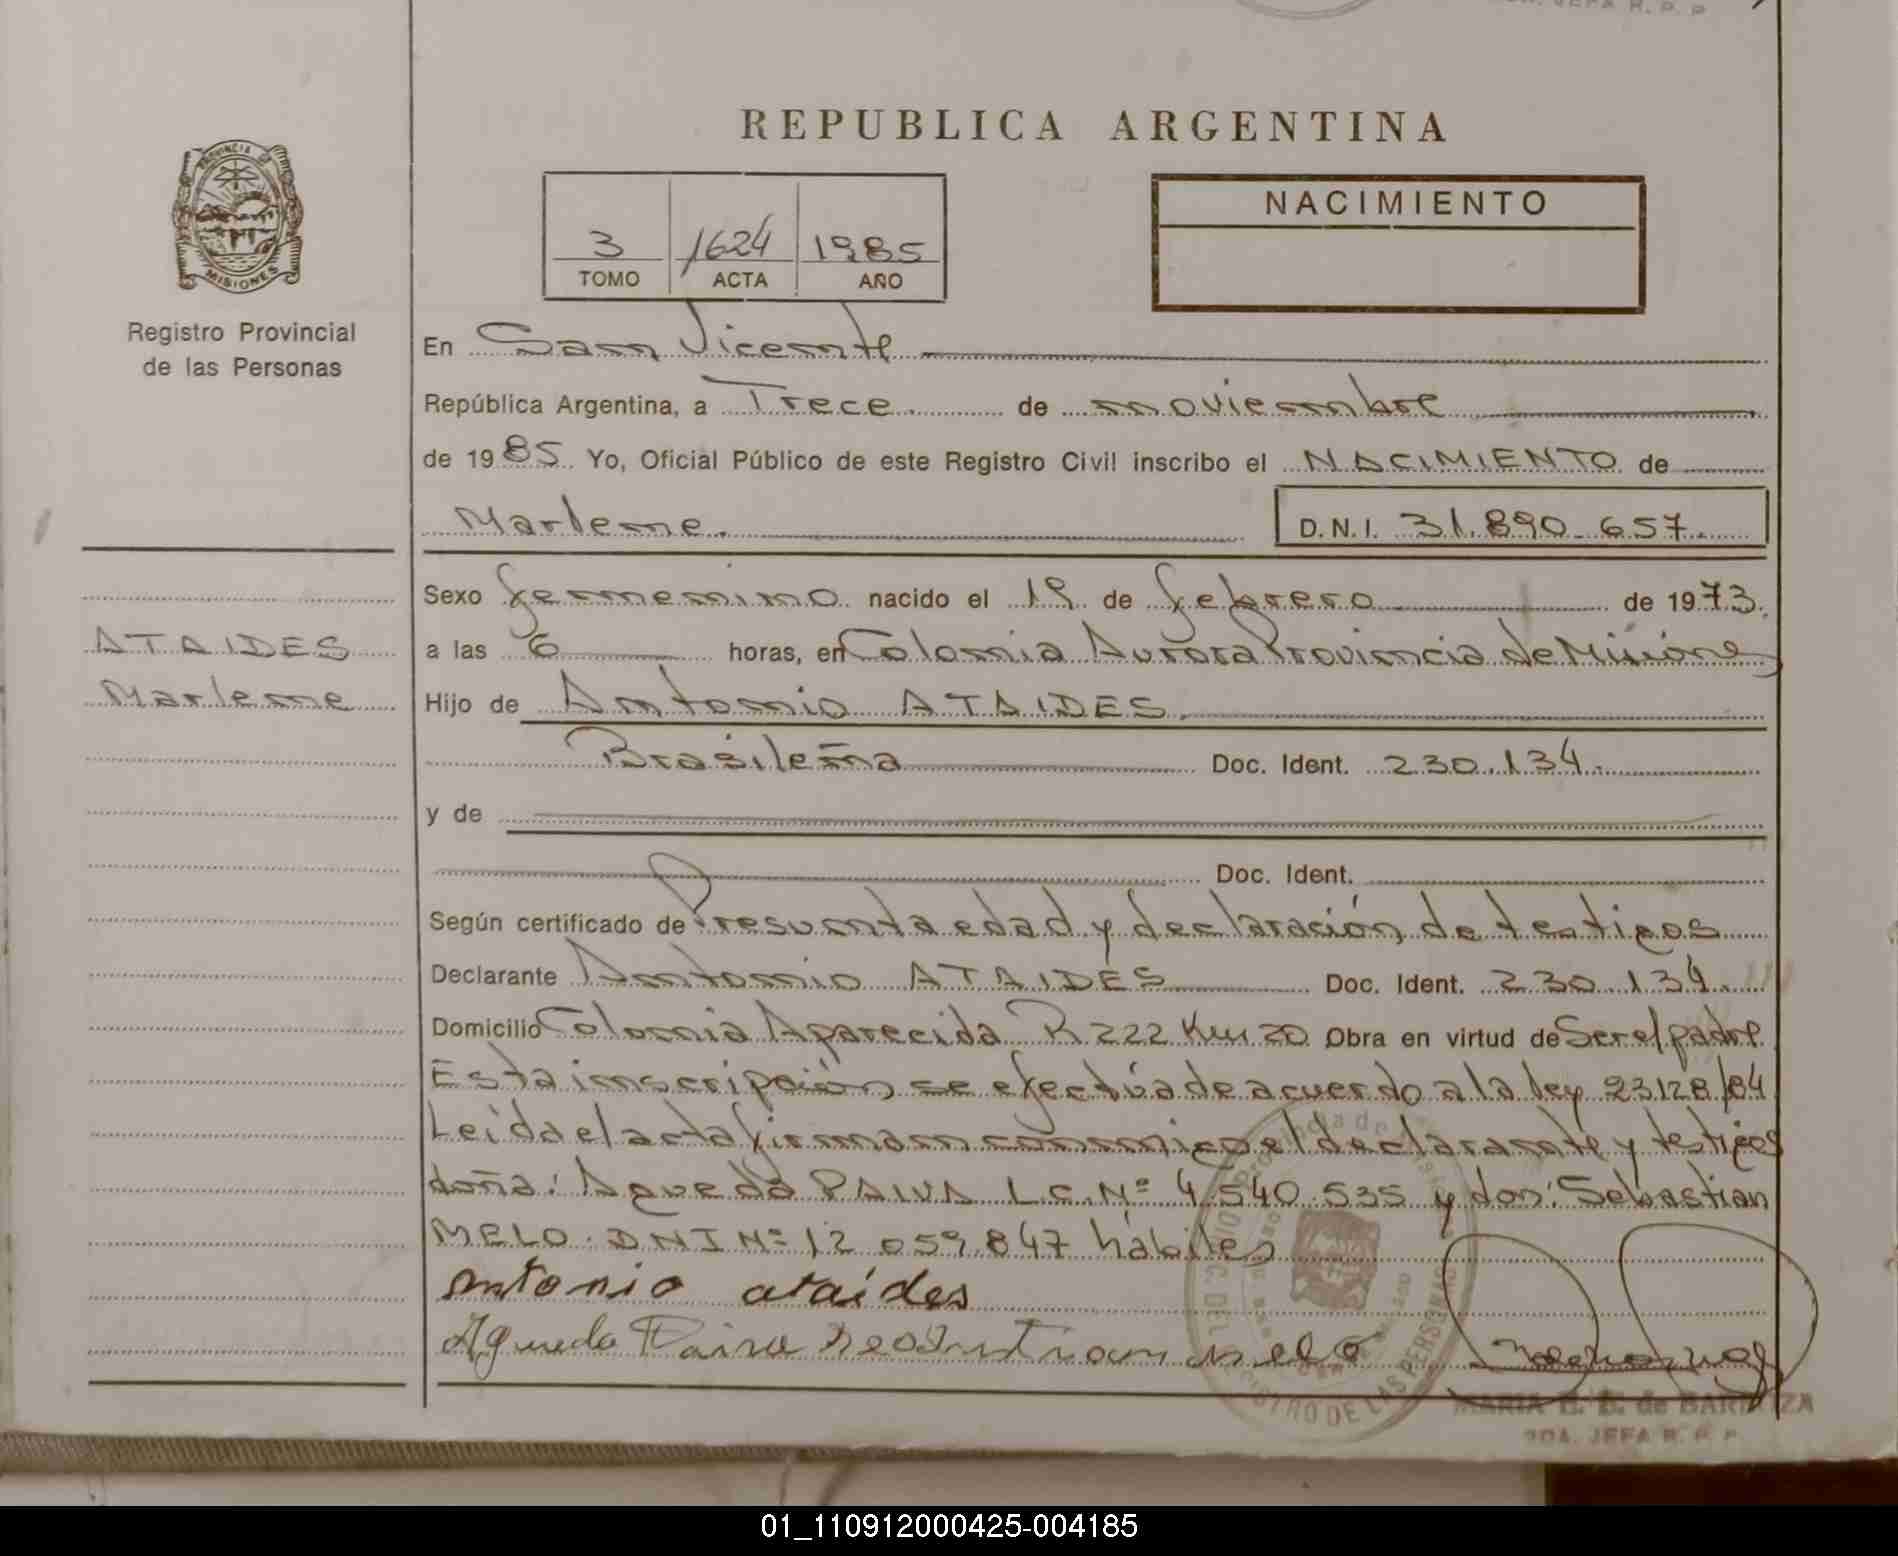 REPUBLICA ARGENTINA
PROVINCIA DE
MISIONES
Registro Provincial
de las Personas
3 1624 1985
TOMO ACTA AÑO
NACIMIENTO
En San Vicente
República Argentina, a Trece de noviembre
de 1985 Yo, Oficial Público de este Registro Civil inscribo el NACIMIENTO de
Marlene. D.N.I. 31.890.657.
Sexo femenino nacido el 19 de febrero de 1973.
ATAIDES
Marlene
a las 6 horas, en Colonia Aurora Provincia de Misiones
Hijo de Antonio ATAIDES.
Brasileña Doc. Ident. 230.134.
y de
Doc. Ident.
Según certificado de Presunta edad y declaración de testigos
Declarante Antonio ATAIDES Doc. Ident. 230.134.
Domicilio Colonia Aparecida R 222 Km 20 Obra en virtud de Ser el padre
Esta inscripción se efectúa de acuerdo a la ley 23.128/84
Leida el acta firman conmigo el declarante y testigos
doña: Agueda PAIVA L.C. Nº 4.540.535 y don: Sebastian
MELO. DNI Nº 12.059.847 hábiles
Antonio ataídes
Agueda Paiva Sebastian melo
REGISTRO DE LAS PERSONAS
MARIA B. B. de
2DA. JEFA R. P. P.
01_110912000425-004185